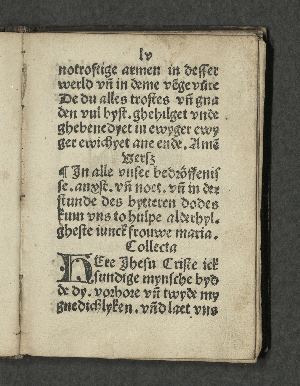 lv
notroftige armen in desser
werld vñ in deme vegevůre
De du alles trostes vñ gna
den vul byst. ghehilget vnde
ghebenedyet in ewyger ewy
ger ewichyet ane ende. Amē
Versz
¶ In alle vnser bedröffenis
se. anxst. vñ noet. vñ in der
stunde des bytteren dodes
kum vns to hulpe alderhyl.
gheste iunckfrouwe maria.
Collecta
HEre Jhesu Criste ick
sundige mynsche byd
de dy. vorhore vñ twyde my
gnedichlyken. vñd laet vns